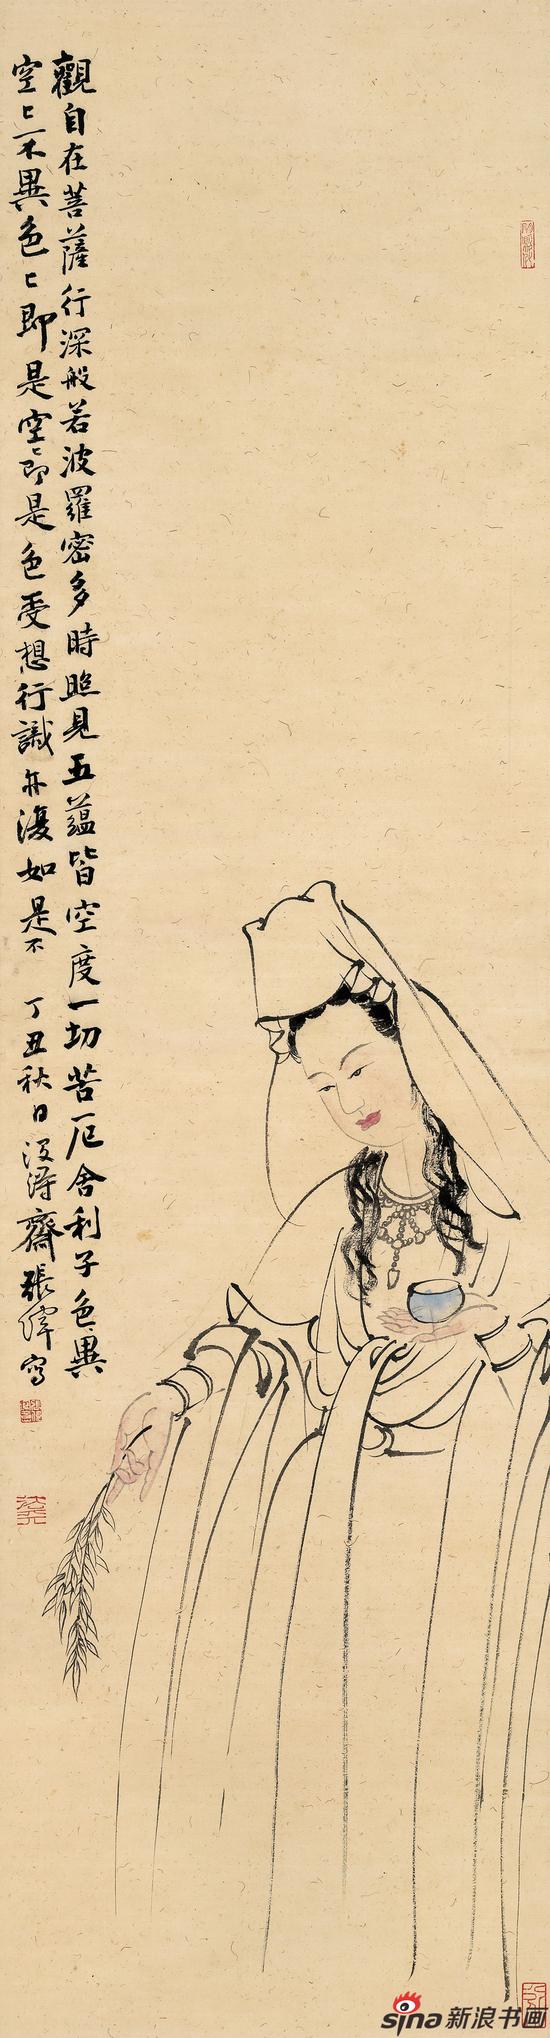 觀自在菩薩行深般若波羅密多時照見五蘊皆空度一切苦厄舍利子色異
空〻不異色〻即是空〻即是色受想行識亦復如是不 丁丑秋日得齋張寫
sina新浪书画